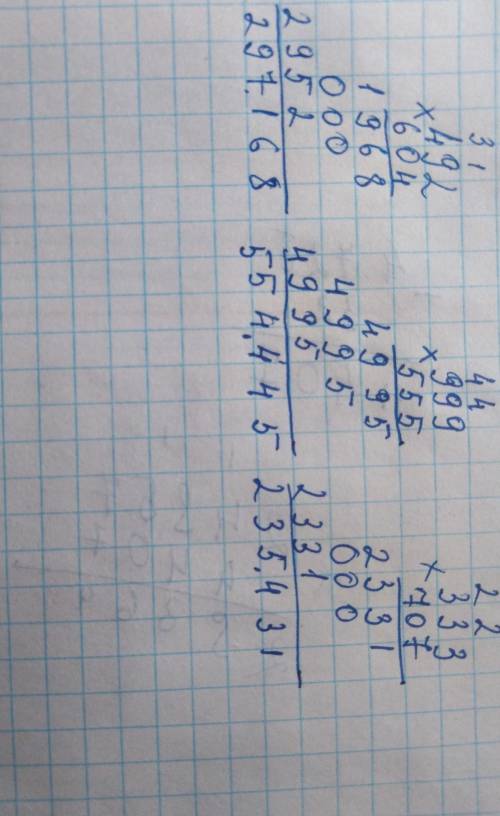 31
492
×604
1968
000
2952
297.168
44
999
×555
4995
4995
4995
554.445
22
333
×707
2331
000
2331
235.431